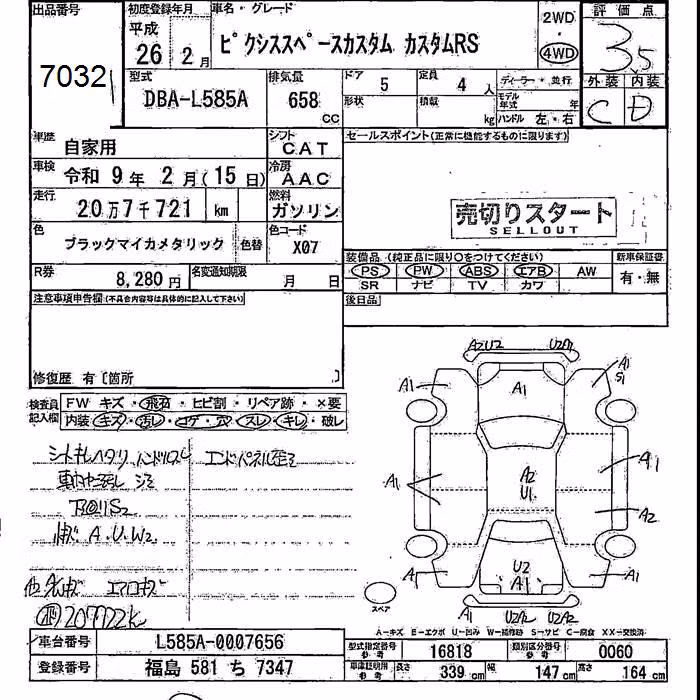 出品番号
7032
初度登録年月
平成
26 年 2 月
車名・グレード
ピクシススペースカスタム カスタムRS
2WD
・
4WD
評価点
3.5
外装 内装
C D
型式
DBA-L585A
排気量
658
CC
ドア
5
定員
4 人
形状
積載
kg
ディーラー・並行
モデル年式 年
ハンドル 左・右
車歴
自家用
シフト
CAT
車検
令和 9 年 2 月(15 日)
冷房
AAC
走行
20万7千721 km
燃料
ガソリン
色
ブラックマイカメタリック
色替
色コード
X07
R券
8,280 円
名変通知期限
月 日
セールスポイント(正常に機能するものに限ります)
売切りスタート
SELLOUT
装備品(純正品に限り○をつけてください)
PS・PW・ABS・エアB・AW
SR ナビ TV カワ
新車保証書
有・無
後日品
注意事項申告欄(不具合内容等は具体的に記入して下さい)
修復歴 有〔箇所 〕
検査員記入欄
FW キズ・飛石・ヒビ割・リペア跡・×要
内装 キズ・汚レ・コゲ・穴・スレ・キレ・破レ
エンドパネル歪
A.U.W2
A2 U2
A1
A1
A1
S1
A1
A1
A1
A2
U1
A2
A
U2
A1
A1
U2 A2 U2 A2
スペア
A－キズ E－エクボ U－凹み W－補修跡 S－サビ C－腐食 XX－交換済
車台番号
L585A-0007656
登録番号
福島 581 ち 7347
型式指定番号
参考
16818
類別区分番号
参考
0060
車庫証明用
参考
長さ 339 cm 幅 147 cm 高さ 164 cm